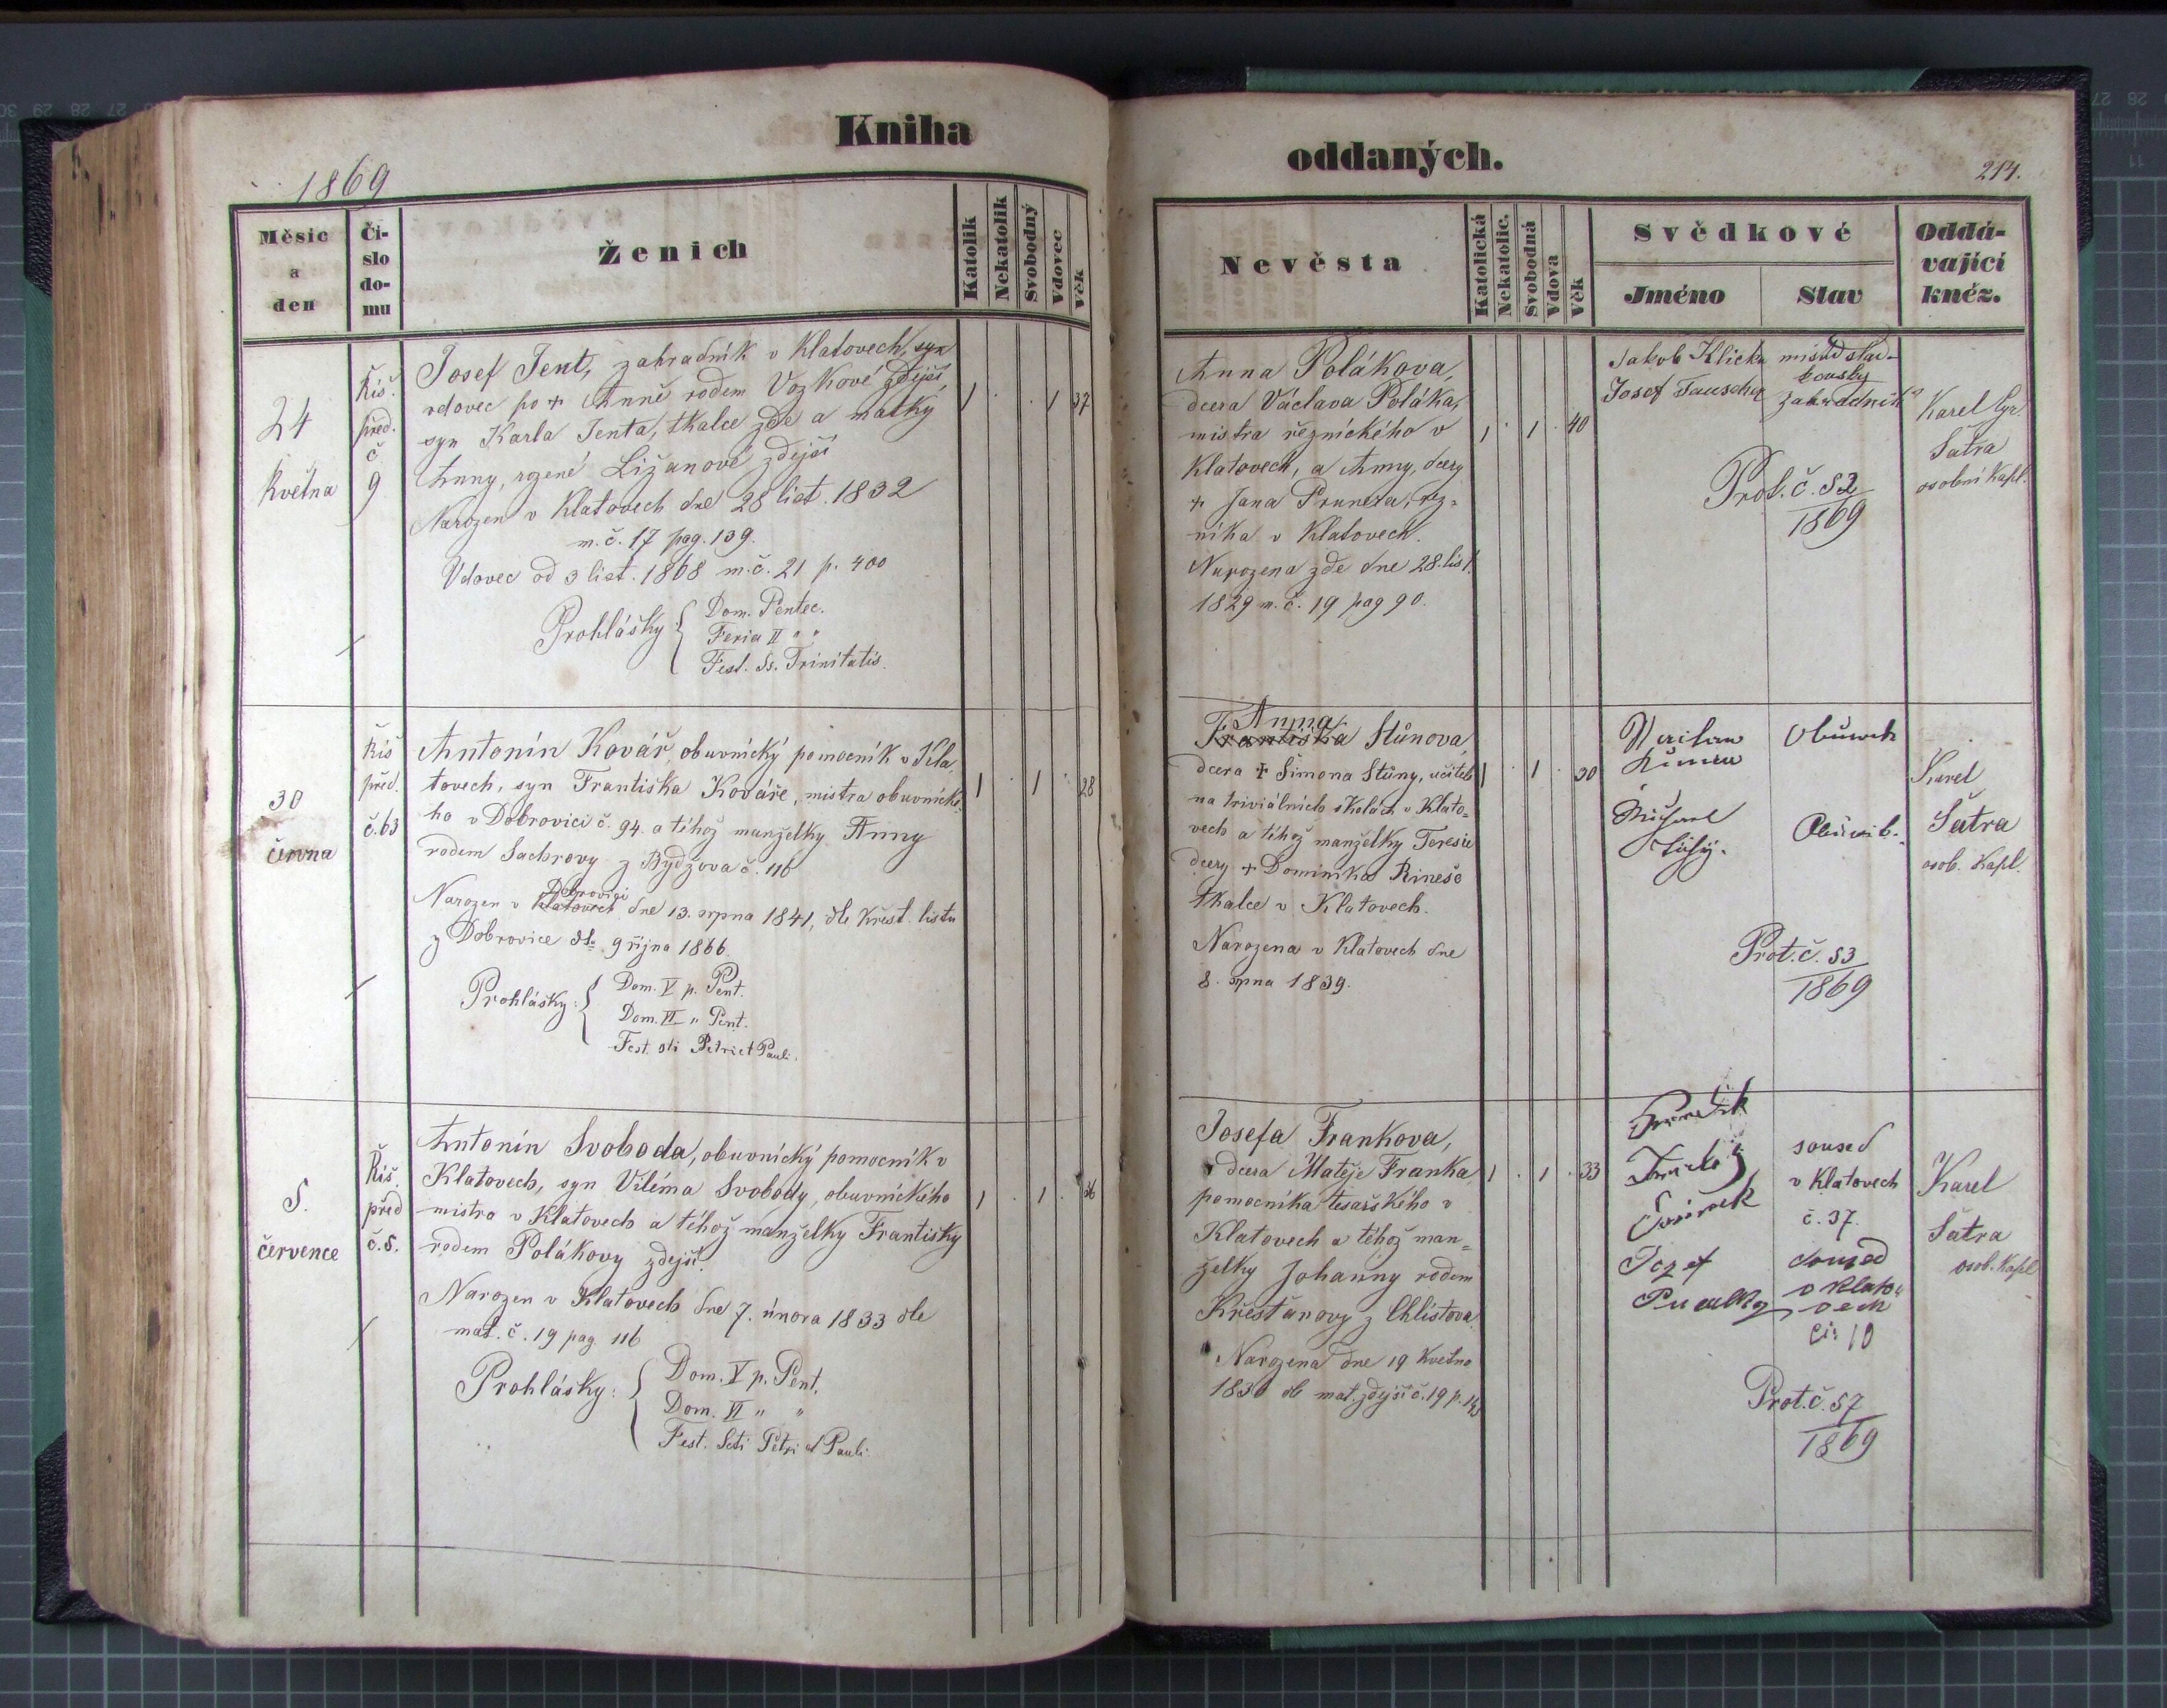 Kniha
1869
Měsíc
a
den
Čí-
slo
do-
mu
Ženich
Katolík
Nekatolík
Svobodný
Vdovec
Věk
24
Května
Říš.
před.
č
9
Josef Jent, zahradník v Klatovech, syn
vdovec po + Anně rodem Vozkové zdejší,
syn Karla Jenta, tkalce zde a matky
Anny, rozené Ližanové zdejší
Narozen v Klatovech dne 28 list. 1832
m. č. 17 pag. 139.
Vdovec od 3 list. 1868 m. č. 21 p. 400
Prohlášky: Dom. Pentec.
Feria II " "
Fest. Ss. Trinitatis.
1 . . 1 37
30
června
Říš
před.
č. 63
Antonín Kovář, obuvnický pomocník v Kla-
tovech, syn Františka Kováře, mistra obuvnické-
ho v Dobrovici č. 94. a téhož manželky Anny
rodem Sachrovy z Bydžova č. 116
Dobrovici
Narozen v Klatovech dne 13. srpna 1841, dle křest. listu
z Dobrovice 9 října 1866.
Prohlášky: Dom. V p. Pent.
Dom. VI " Pent.
Fest. sti Petri et Pauli.
1 . 1 . 28
5.
července
Říš.
před
č. 5.
Antonín Svoboda, obuvnický pomocník v
Klatovech, syn Viléma Svobody, obuvnického
mistra v Klatovech a téhož manželky Františky
rodem Polákovy zdejší.
Narozen v Klatovech dne 7. února 1833 dle
mat. č. 19 pag. 116
Prohlášky: Dom. V p. Pent.
Dom. VI " "
Fest. Scti Petri et Pauli.
1 . 1 . 36
oddaných.
214.
Nevěsta
Katolická
Nekatolic.
Svobodná
Vdova
Věk
Svědkové
Jméno
Stav
Oddá-
vající
kněz.
Anna Polákova,
dcera Václava Poláka,
mistra řeznického v
Klatovech, a Anny, dcery
+ Jana Prunera, řez-
níka v Klatovech.
Narozena zde dne 28. list.
1829 m. č. 19 pag 90.
1 . 1 . 40
Jakob Klicka
Josef Tauscher
zahradník
Prot. č. 52
1869
Karel
Šatra
osobní kapl.
Anna
Františka Stůnova,
dcera + Šimona Stůny, učitele
na triviálních školách v Klato-
vech a téhož manželky Teresie
dcery + Dominika Rineše
tkalce v Klatovech.
Narozena v Klatovech dne
8. srpna 1839.
1 . 1 . 30
Obuwnik
Prot. č. 53
1869
Karel
Šatra
osob. kapl.
Josefa Frankova,
dcera Matěje Franka
pomocníka tesařského v
Klatovech a téhož man-
želky Johanny rodem
Křesťanovy z Chlistova.
Narozena dne 19 Května
1836 dle mat. zdejší č. 19 p.
1 . 1 . 33
soused
v Klatovech
č. 37.
Jozef
soused
v Klato-
vech
Čis 10
Prot. č. 57
1869
Karel
Šatra
osob. kapl